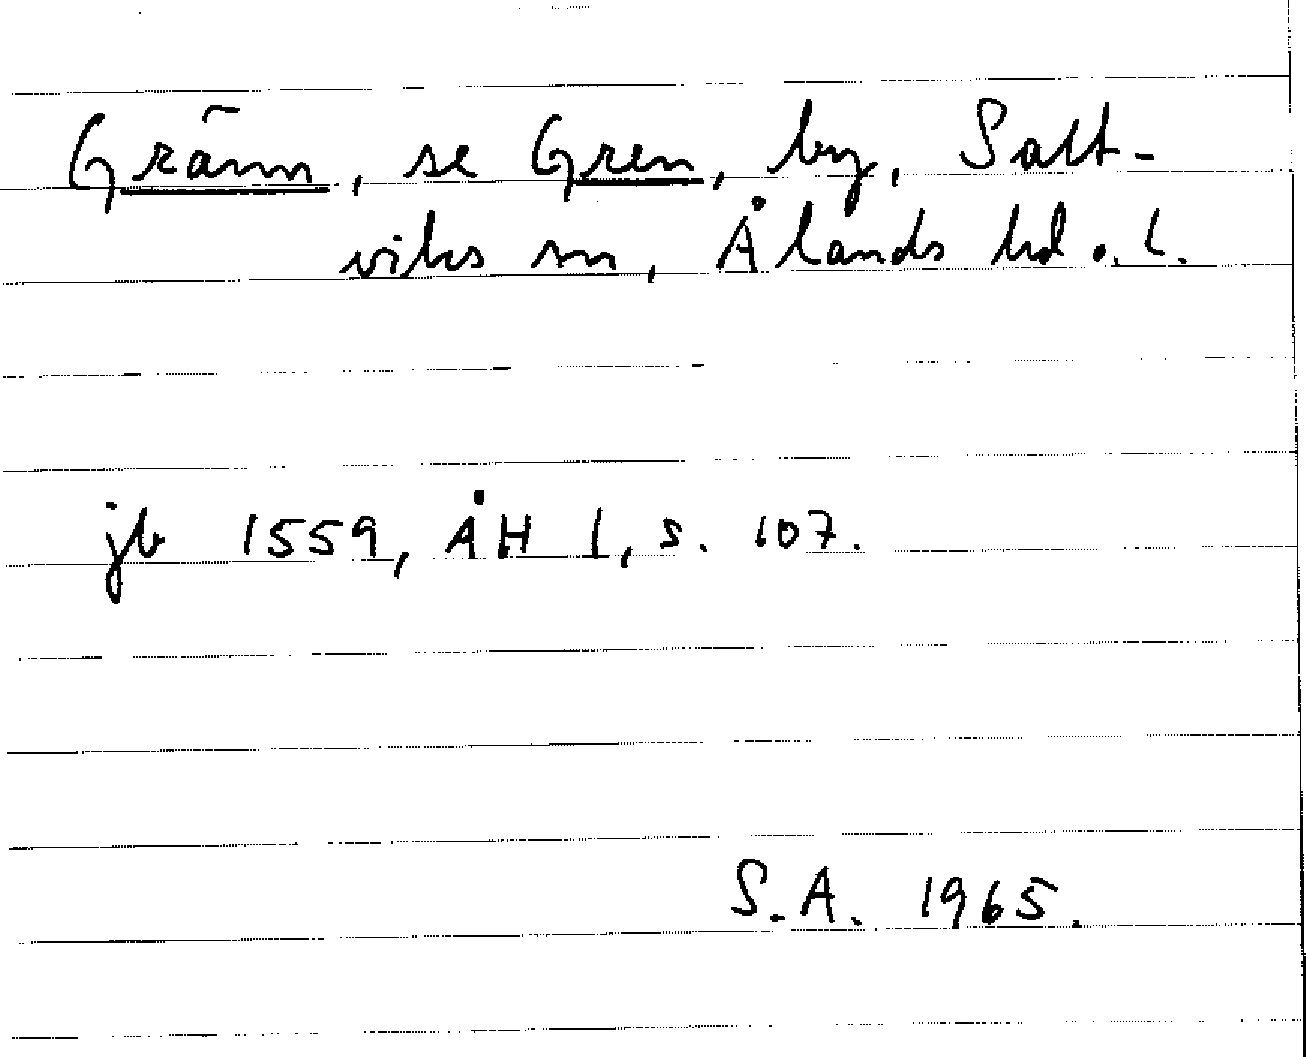 Gränn, se Gren, by, Salt-
viks sn, Ålands hd o. l.
jb 1559, ÅH I, s. 107.
S.A. 1965.